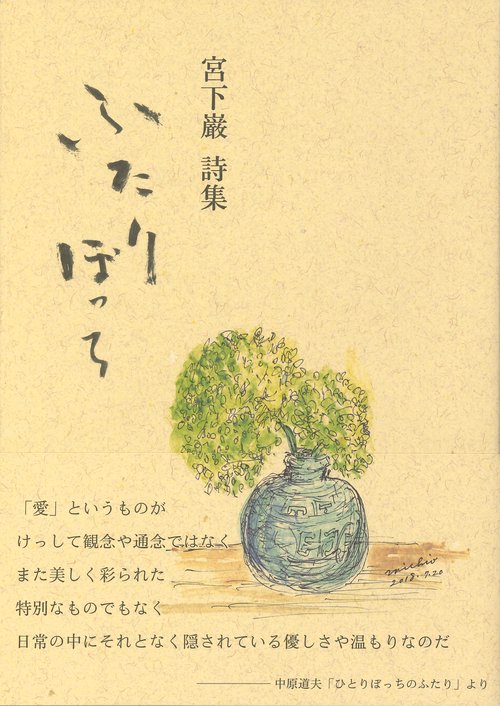 宮下巌 詩集
ふたり
ぼっち
「愛」というものが
けっして観念や通念ではなく
また美しく彩られた
特別なものでもなく
日常の中にそれとなく隠されている優しさや温もりなのだ
michio
2018.9.20
中原道夫「ひとりぼっちのふたり」より